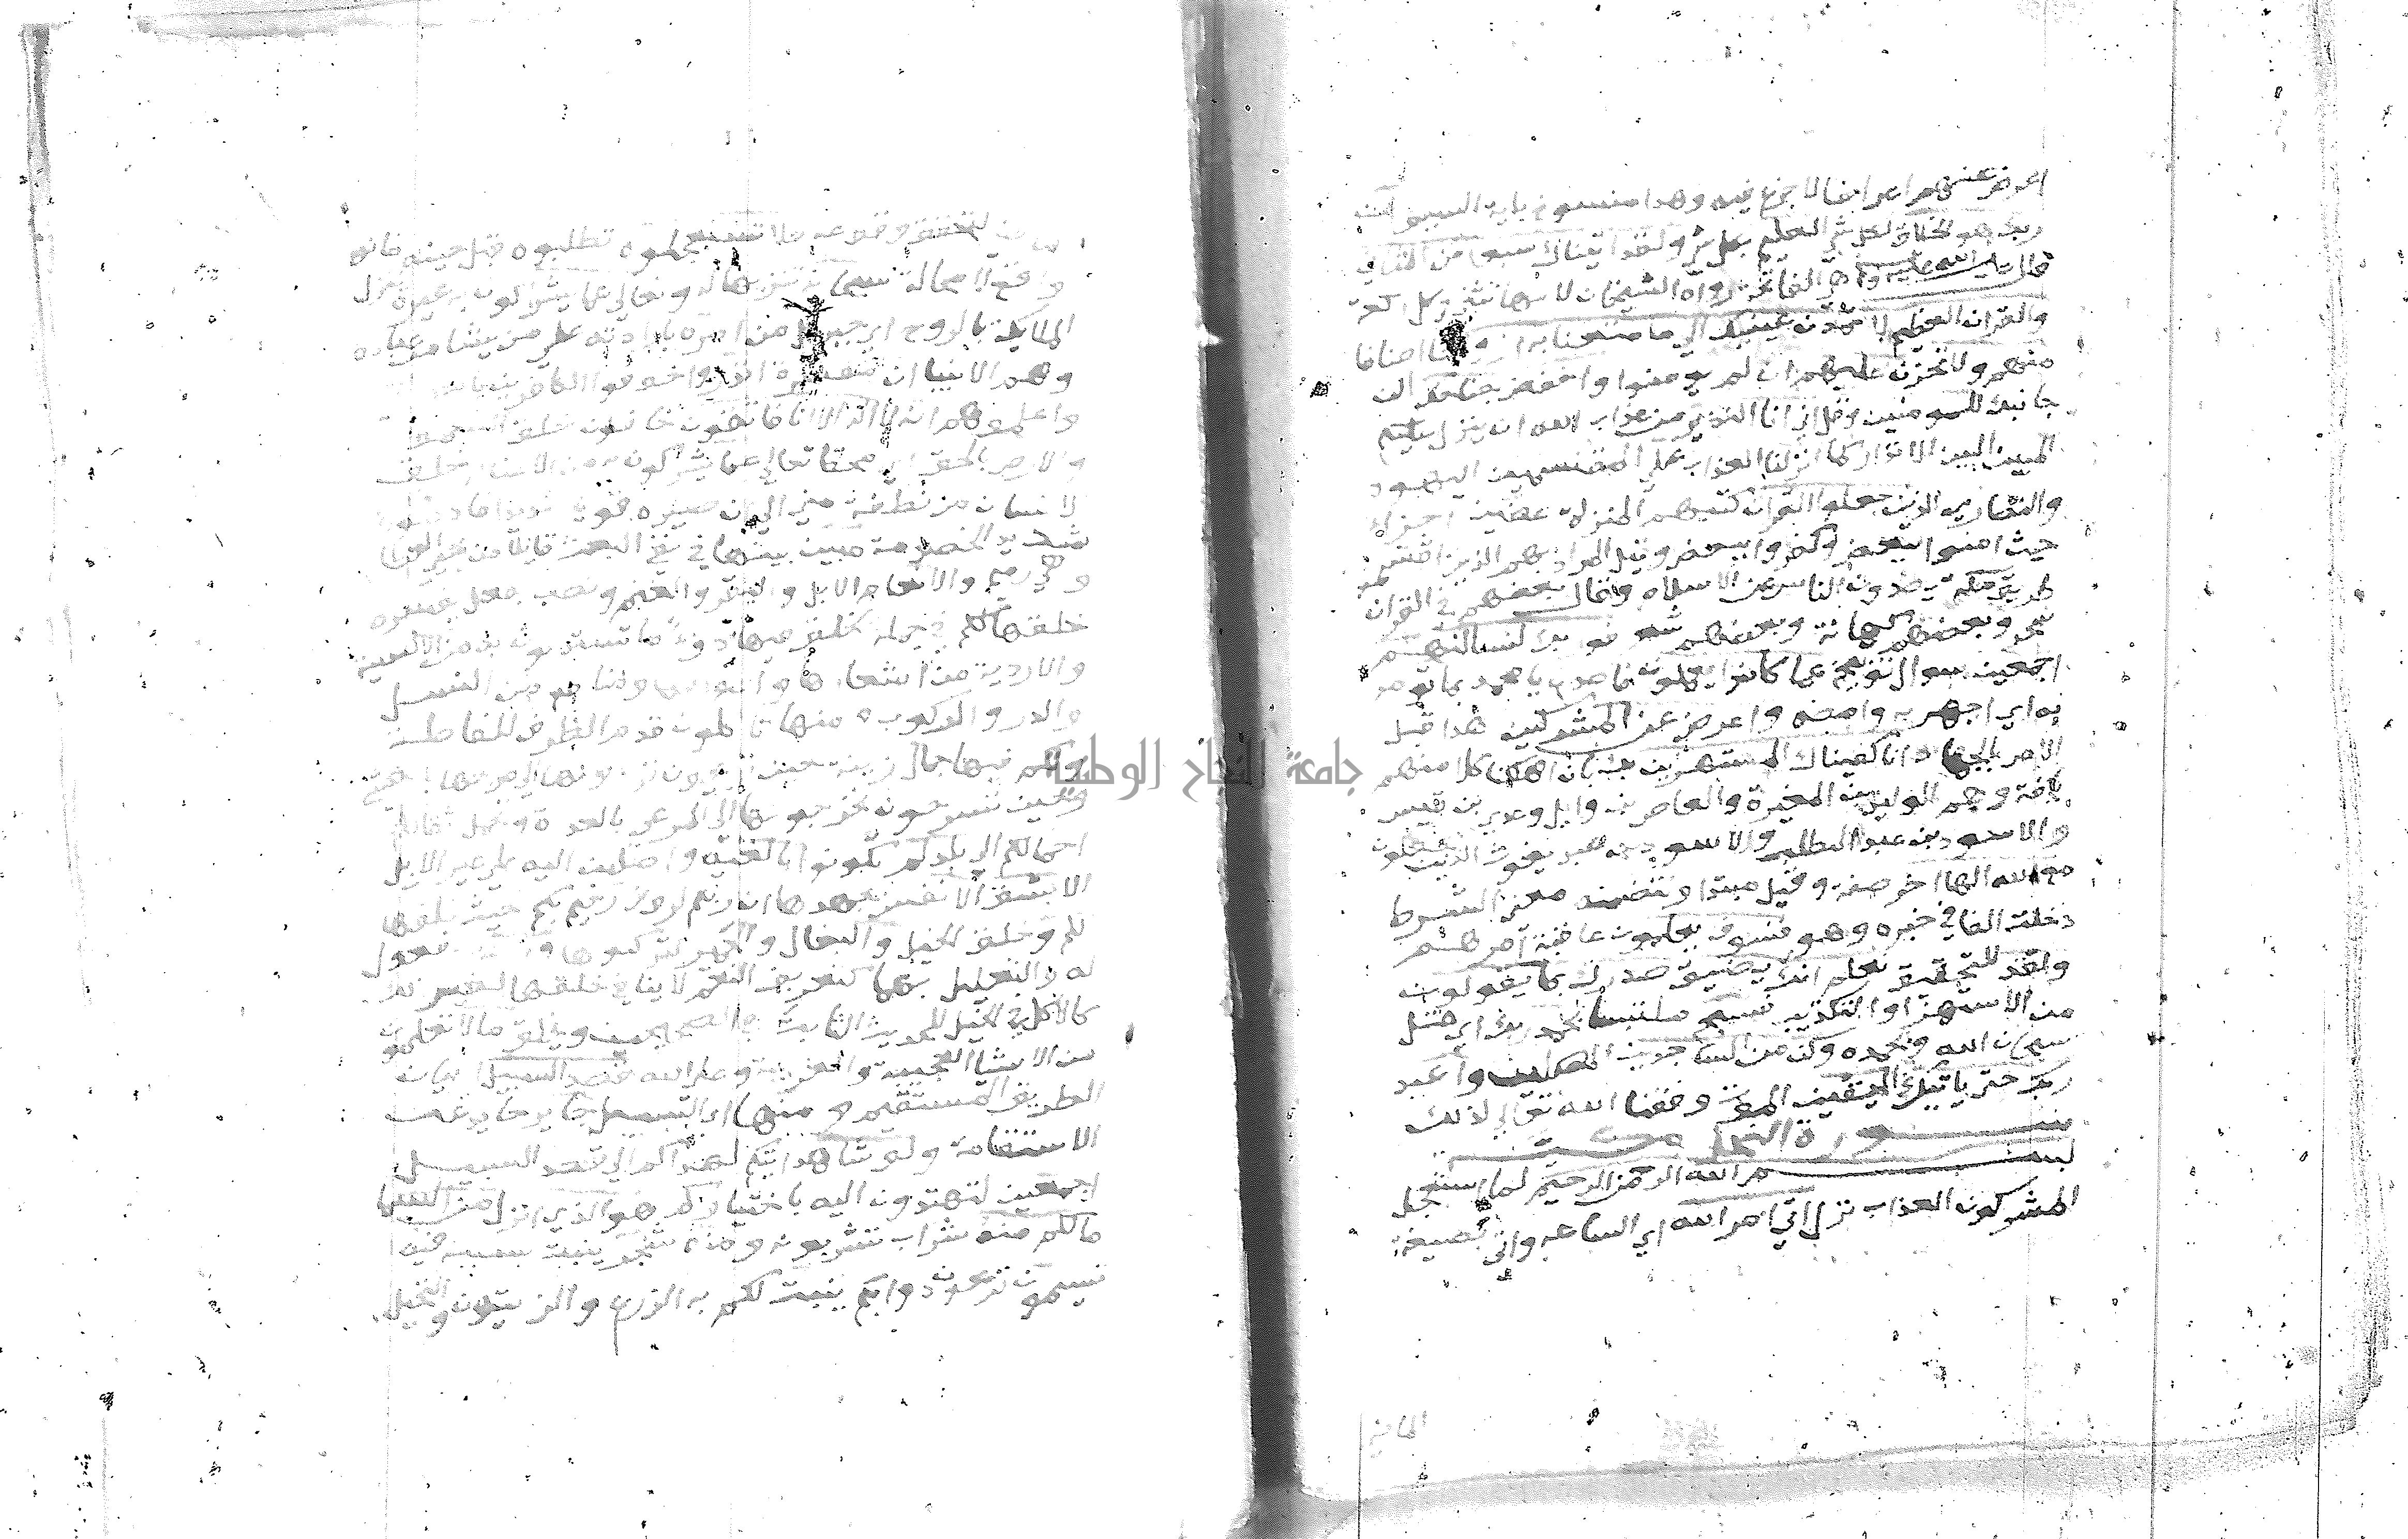 اعرض عنهم اعراضا لا جزع فيه وهذا منسوخ باية السيف ان
ربك هو الخلاق لكل شي العليم بكل شي ولقد اتيناك سبعا من المثاني
قال صلى الله عليه وسلم هي الفاتحة رواه الشيخان لانها تثني في كل ركعة
والقران العظيم لا تمدن عينيك الي ما متعنا به ازواجا اصنافا
منهم ولا تحزن عليهم ان لم يومنوا واخفض جناحك الن
جانبك للمومنين وقل اني انا النذير من عذاب الله ان ينزل عليكم
المبين البين الانذار كما انزلنا العذاب علي المقتسمين اليهود
والنصاري الذين جعلوا القران كتبهم المنزلة عضين اجزاء
حيث امنوا ببعض وكفروا ببعض وقيل المراد بهم الذين اقتسموا
طريق مكة يصدون الناس عن الاسلام وقال بعضهم في القران
سحر وبعضهم كهانة وبعضهم شعر فوربك لنسالنهم
اجمعين سوال توبيخ عما كانوا يعملون فاصدع يا محمد بما تومر
به اي اجهر به وامضه واعرض عن المشركين هذا قبل
الامر بالجهاد انا كفيناك المستهزين بك بان اهلكنا كلا منهم
بافة وهم الوليد بن المغيرة والعاص بن وايل وعدي بن قيس
والاسود بن عبد المطلب والاسود بن عبد يغوث الذين يجعلون
مع الله الها اخر صفة وقيل مبتدا ولتضمنه معني الشرط
دخلت الفا في خبره وهو فسوف يعلمون عاقبة امرهم
ولقد للتحقيق نعلم انك يضيق صدرك بما يقولون
من الاستهزا والتكذيب فسبح ملتبسا بحمد ربك اي قل
سبحان الله وبحمده وكن من الساجدين المصلين واعبد
ربك حتي ياتيك اليقين الموت وفقنا الله تعالي لذلك
سورة النحل
بسم الله الرحمن الرحيم لما استعجل
المشركون العذاب نزل اتي امر الله اي الساعه واتي بصيغة
لتحقق وقوعه فلا تستعجلوه تطلبوه قبل حينه فانه
واقع لا محالة سبحانه تنزيها له وتعالي عما يشركون به غيره ينزل
الملايكة بالروح اي جبريل من امره بارادته علي من يشا من عباده
وهم الانبيا ان مفسرة انذروا خوفوا الكافرين
واعلموهم انه لا اله الا انا فاتقون خافون خلق السموات
والارض بالحق اي محقا تعالي عما يشركون به من الاصنام خلق
الانسان من نطفة مني الي ان صيره قويا شديدا فاذا هو
شديد الخصومة مبين بينها في نفي البعث قايلا من يحي العظام
وهي رميم والانعام الابل والبقر والغنم ونصب بفعل يفسره
خلقها لكم في جملة الناس فيها دفء ما تستدفون به من الاكسية
والاردية من اشعارها واصوافها ومنافع من النسل
والدر والركوب ومنها تاكلون قدم الظرف للفاصلة
ولكم فيها جمال زينة حين تريحون تردونها الي مراحها بالعشي
وحين تسرحون تخرجونها الي المرعي بالغداة وتحمل اثقالكم
احمالكم الي بلد لم تكونوا بالغيه واصلين اليه علي غير الابل
الا بشق الانفس بجهدها ان ربكم لروف رحيم بكم حيث خلقها
لكم وخلق الخيل والبغال والحمير لتركبوها وزينة مفعول
له والتعليل بهما لتعريف النعم لا ينافي خلقها لغير ذلك
كالاكل في الخيل للحديث الثابت في الصحيحين ويخلق ما لا تعلمون
من الاشيا العجيبة والغريبة وعلي الله قصد السبيل اي بيان
الطريق المستقيم ومنها اي السبيل جاير حايد عن
الاستقامة ولو شا هدايتكم لهداكم الي قصد السبيل
اجمعين لتهتدون اليه باختياركم هو الذي انزل من السما
ما لكم منه شراب تشربونه ومنه شجر ينبت بسببه فيه
تسيمون ترعون دوابكم ينبت لكم به الزرع والزيتون والنخيل
جامعة النجاح الوطنية